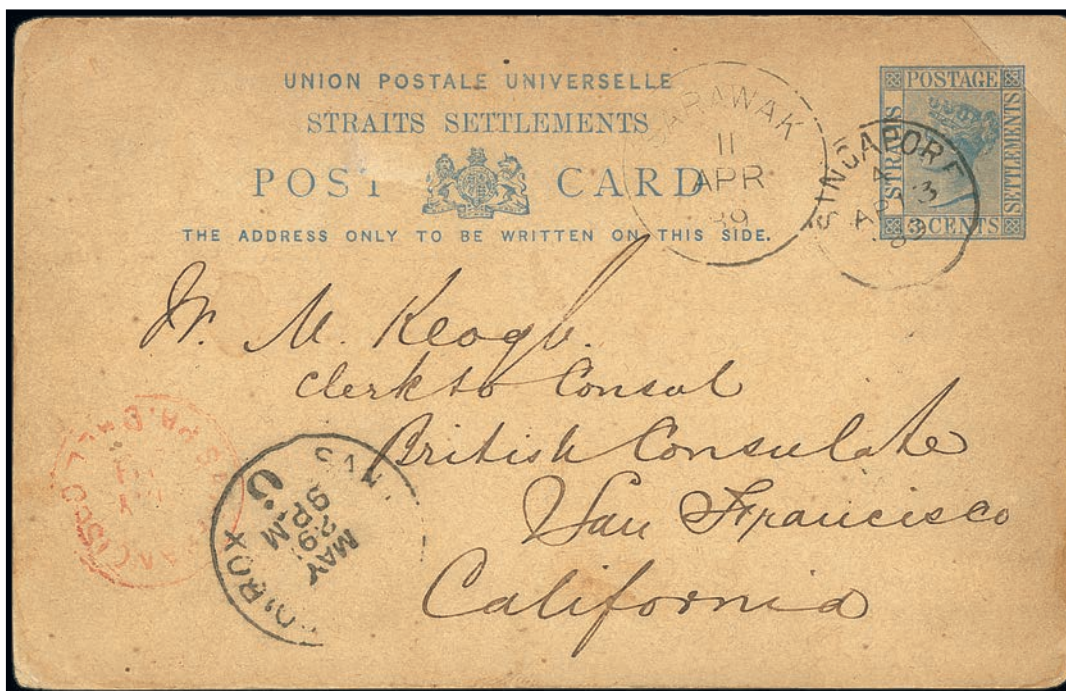 UNION POSTALE UNIVERSELLE
STRAITS SETTLEMENTS
POST CARD
THE ADDRESS ONLY TO BE WRITTEN ON THIS SIDE.
POSTAGE
STRAITS
SETTLEMENTS
3 CENTS
SARAWAK
11
APR
89
SINGAPORE
AP 13
89
W. M. Keogh.
Clerk to Consul
British Consulate
San Francisco
California
MAY
29
PM